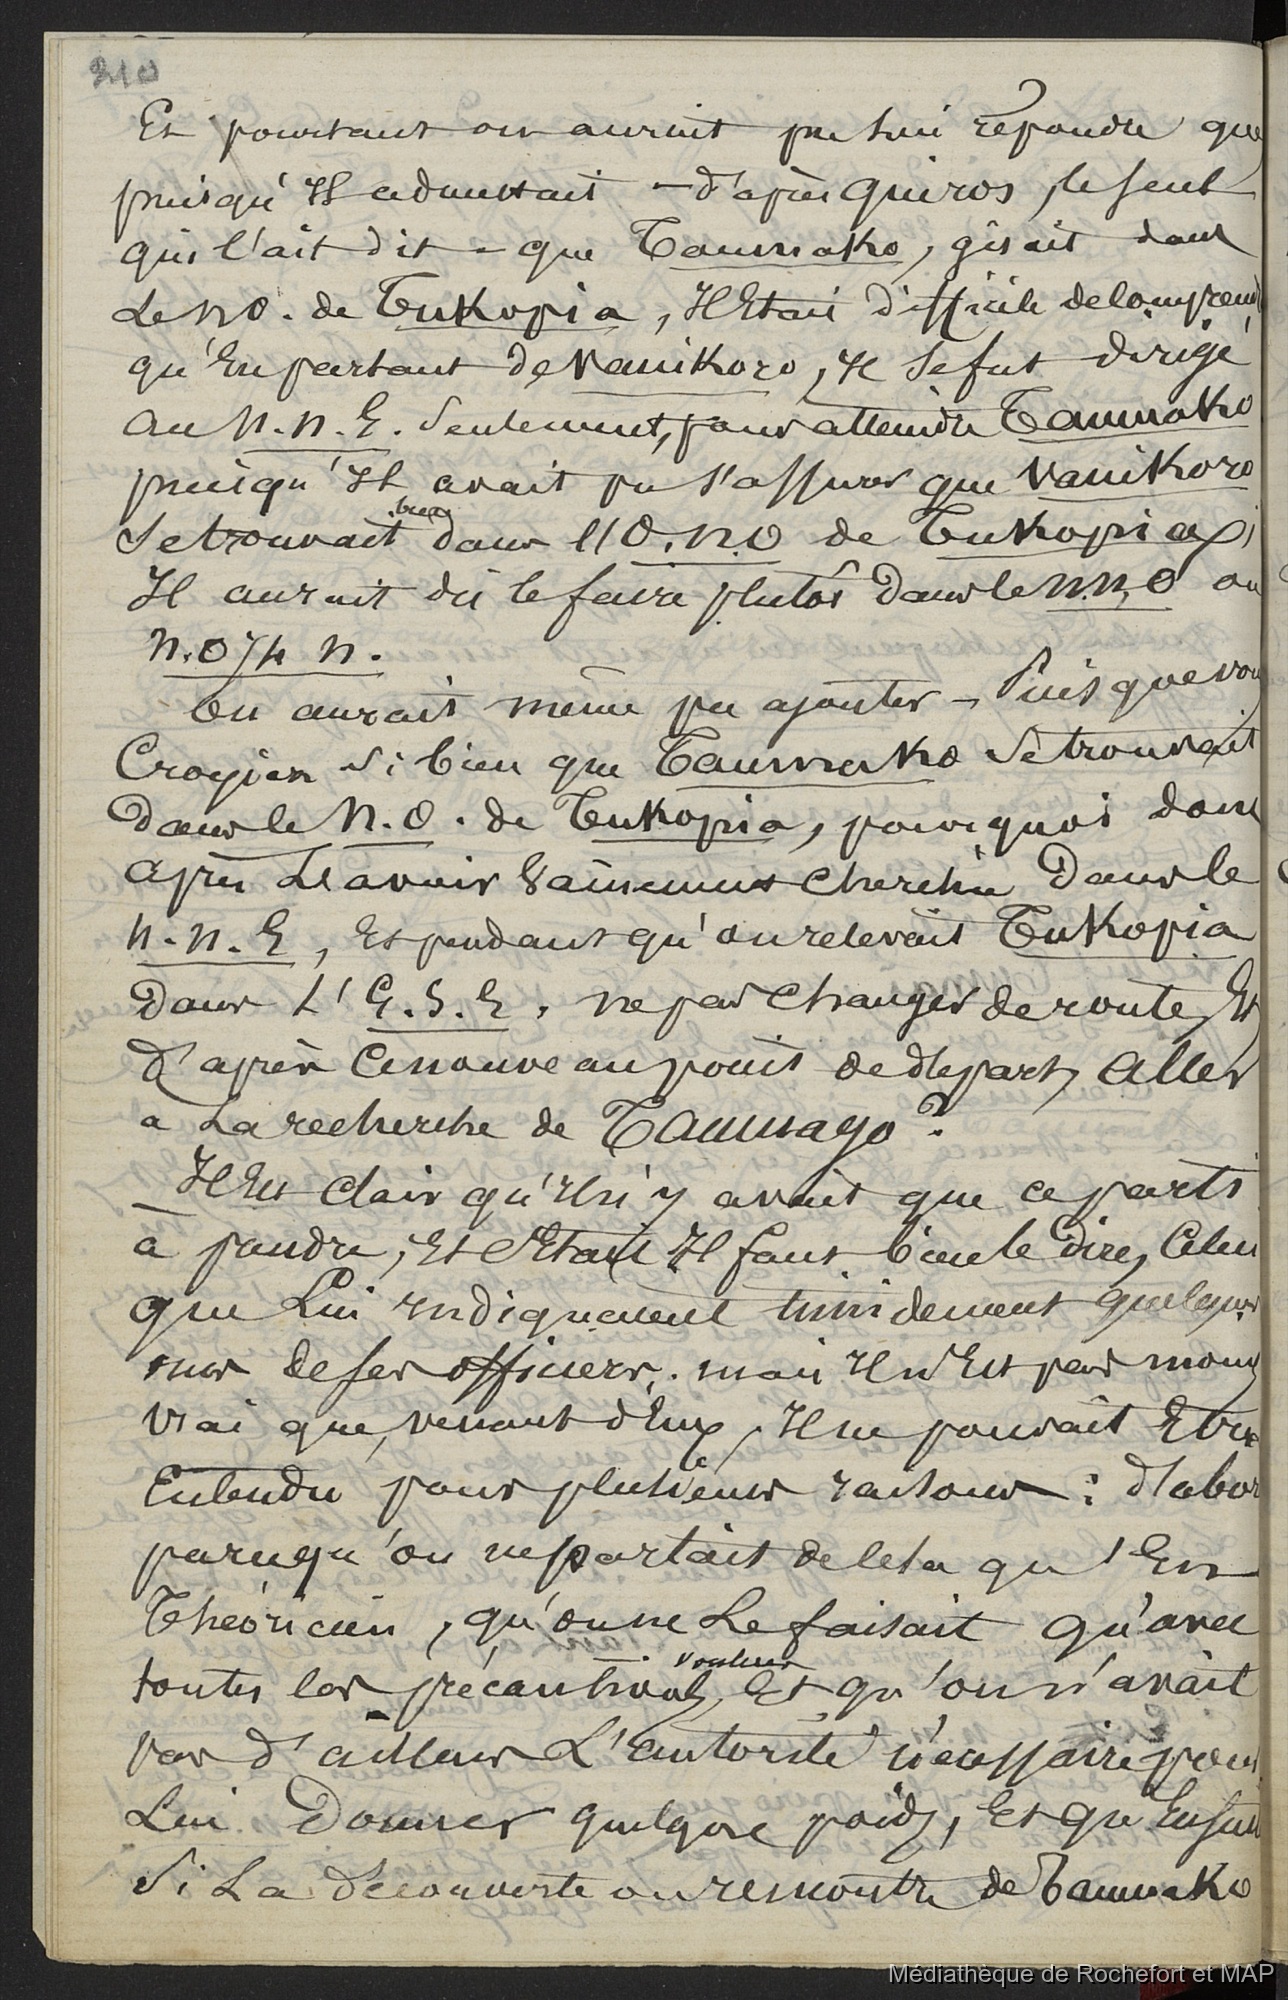 210
Et pourtant on aurait pu lui répondre que
puisqu'il admettait – d'après Quiros, le seul
qui l'ait dit – que Taumako, gisait dans
le NO. de Tukopia, il Etait difficile de comprend
qu'en partant de Vanikoro, il se fut dirigé
au N.N.E. seulement, pour atteindre Taumako
puisqu'il avait pu s'assurer que Vanikoro
se trouvait bien dans l'O.N.O de Tukopia;
Il aurait dû le faire plutôt dans le N.N.O ou
N.O 1/4 N.
On aurait même pu ajouter – Puisque vou
Croyiez si bien que Taumako se trouvait
dans le N.O. de Tukopia, pourquoi donc
après l'avoir vainement cherché dans le
N.N.E, Et pendant qu'on relevait Tukopia
dans l'E.S.E, ne pas changer de route, Et
d'après ce nouveau point de départ, aller
a la recherche de Taumago?
Il Est clair qu'il n'y avait que ce parti
à prendre, Et c'Etait il faut bien le dire, Celui
que lui indiquaient timidement quelques
uns de ses officiers. mais il n'Est pas moins
vrai que, venant d'Eux, Il ne pouvait Etre
Entendu pour plusieurs raisons : d'abor
parcequ'on ne partait de cela qu'En
Théoricien, qu'on ne le faisait qu'avec
toutes les précautions voulues, Et qu'on n'avait
pas d'ailleurs l'autorité nécessaire pour
Lui donner quelque poids, Et qu'Ensui
si la découverte ou rencontre de Taumako
Médiathèque de Rochefort et MAP